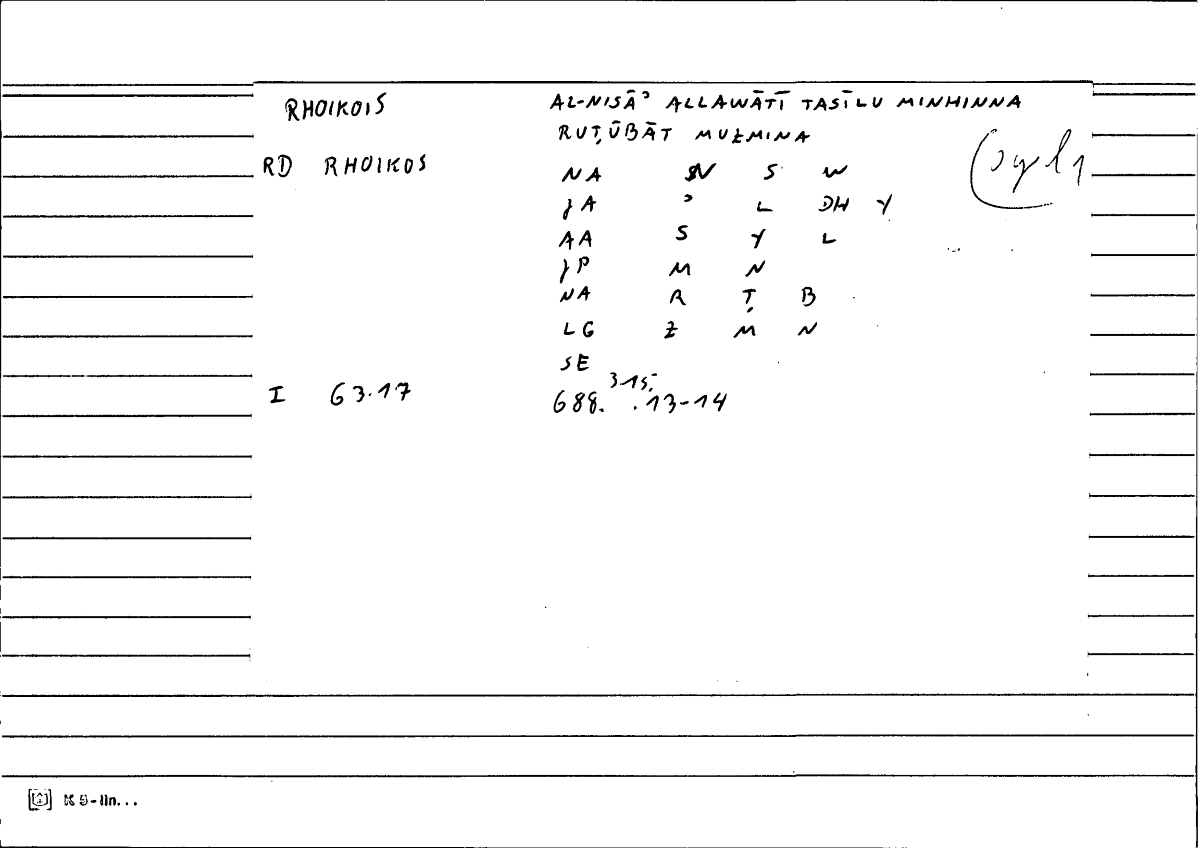 RHOIKOIS AL-NISĀʾ ALLAWĀTĪ TASĪLU MINHINNA
RUṬŪBĀT MUZMINA
RD RHOIKOS NA N S W
JA ʾ L DH Y
AA S Y L
JP M N
NA R Ṭ B
LG Z M N
SE
I 63.17 688. 315. .13-14
K 5-lin...